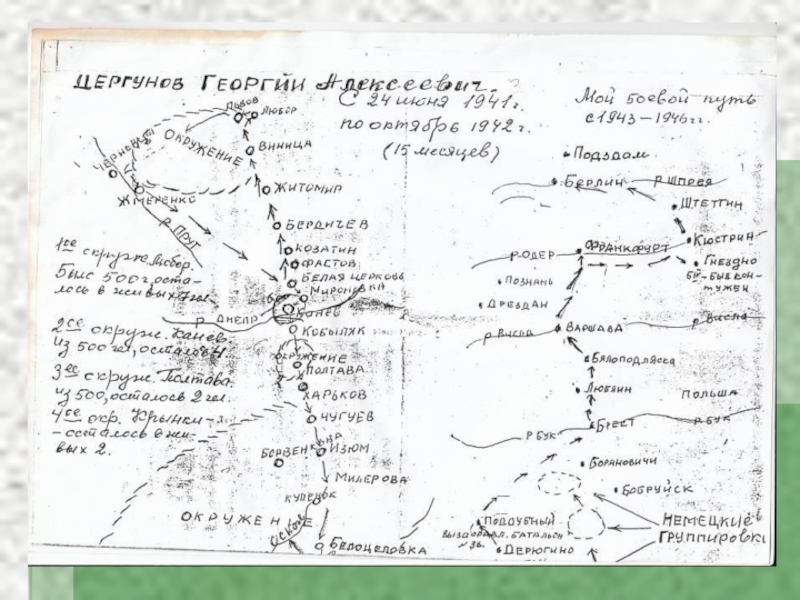 ЦЕРГУНОВ ГЕОРГИЙ Алексеевич.
С 24 июня 1941г.
по октябрь 1942 г.
(15 месяцев)
Мой боевой путь
с 1943–1946 гг.
ЛЬВОВ
ЛЮБОР
ОКРУЖЕНИЕ
ВИННИЦА
ЖМЕРЕНКО
р. ПРУТ
ЖИТОМИР
БЕРДИЧЕВ
КОЗАТИН
ФАСТОВ
БЕЛАЯ ЦЕРКОВЬ
Мироневка
КАНЕВ
р. ДНЕПР
КОБЫЛЯК
ОКРУЖЕНИЕ
ПОЛТАВА
ХАРЬКОВ
ЧУГУЕВ
ИЗЮМ
МИЛЕРОВА
ОКРУЖЕНИЕ
Белоцеловка
1ое окруж. Любор.
Было 500 г, оста-
лось в живых 7 чел.
2ое окруж. Канев
из 500 чел, осталось 4.
3ее окруж. Полтава
из 500, осталось 2 чел.
4ое окр. Крынки –
– осталось в жи-
вых 2.
Подздам
БЕРЛИН
р. шпрея
ШТЕТТИН
р. ОДЕР
ФРАНКФУРТ
КЮСТРИН
ГНЕЗДНО
ПОЗНАНЬ
ДРЕЗДАН
р. Висла
ВАРШАВА
р. Висла
Бялоподлясса
Люблин
ПОЛЬША
р. БУК
БРЕСТ
р. БУК
Борановичи
БОБРУЙСК
ПОДДУБНЫЙ
ДЕРЮГИНО
НЕМЕЦКИЕ
ГРУППИРОВКИ